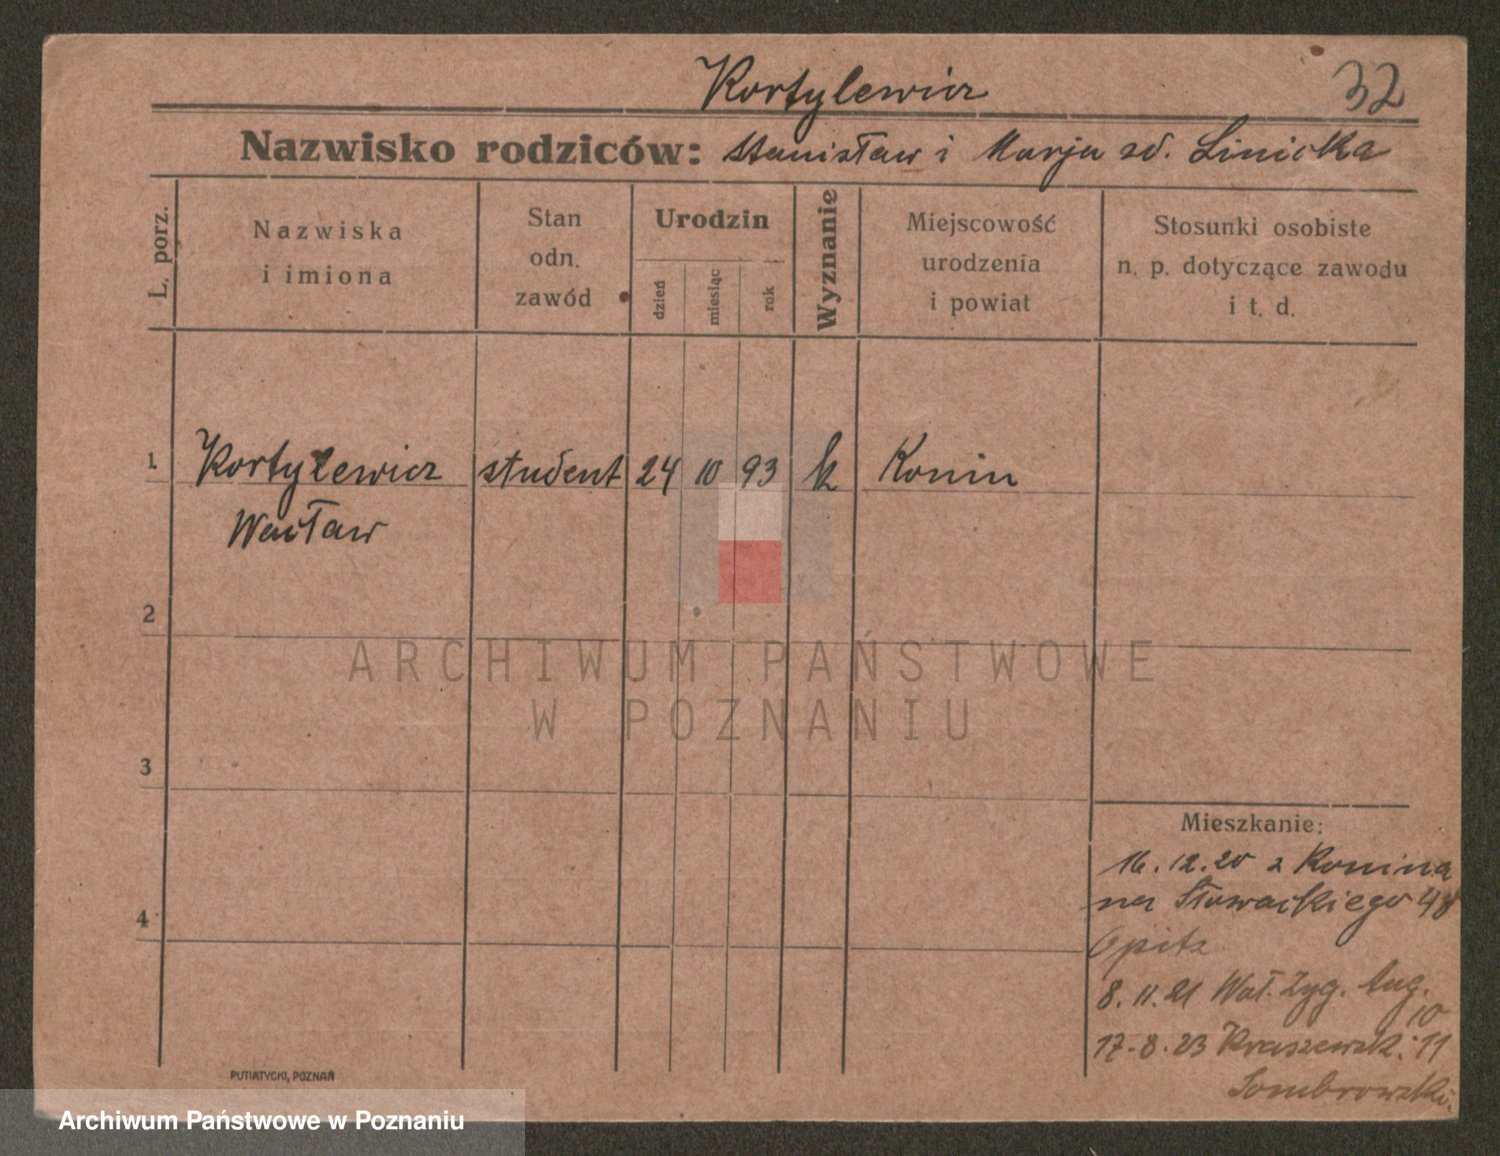 Kortylewicz
32
Nazwisko rodziców: Stanisław i Marja zd. Linicka
L. porz.
Nazwiska
i imiona
Stan
odn.
zawód
Urodzin
dzień
miesiąc
rok
Wyznanie
Miejscowość
urodzenia
i powiat
Stosunki osobiste
n. p. dotyczące zawodu
i t. d.
1 Kortylewicz student 24 10 93 k Konin
Wacław
2
3
4
Mieszkanie:
16.12.20 z Konina
na Słowackiego 48
Opitz
8.11.21 Wał. Zyg. Aug.
10
17-8.23 Kraszewsk. 11
Dombrowski.
PUTIATYCKI, POZNAŃ
ARCHIWUM PAŃSTWOWE
W POZNANIU
Archiwum Państwowe w Poznaniu